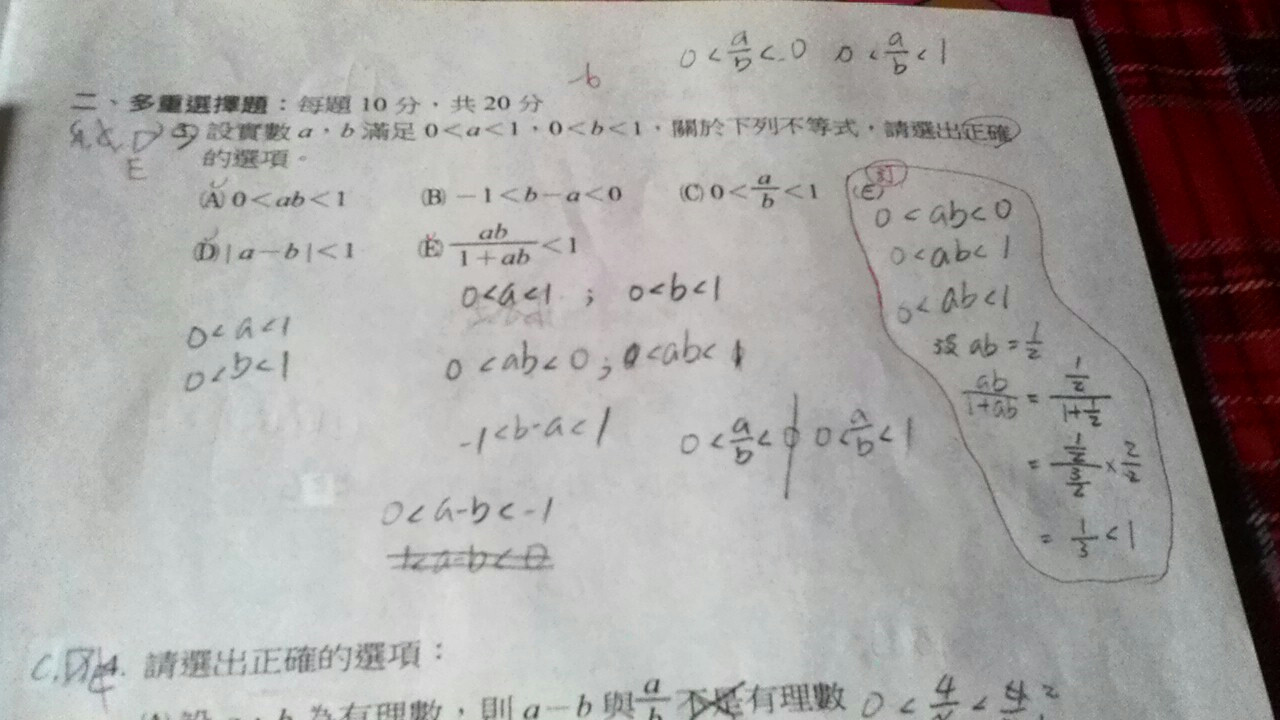 0 < a/b < 0  0 < a/b < 1
-b
二、多重選擇題：每題 10 分，共 20 分
D 3. 設實數 a，b 滿足 0<a<1，0<b<1，關於下列不等式，請選出正確
E 的選項。
(A) 0<ab<1 (B) −1<b−a<0 (C) 0<a/b<1
(D) |a−b|<1 (E) ab/(1+ab)<1
(E)
0 < ab < 0
0 < ab < 1
0 < ab < 1
設 ab = 1/2
ab/(1+ab) = (1/2)/(1+1/2)
= (1/2)/(3/2) × 2/2
= 1/3 < 1
0<a<1 ; 0<b<1
0<a<1
0<b<1
0<ab<0 ; 0<ab<1
-1<b-a<1
0<a/b<0 0<a/b<1
0<a-b<-1
1<a-b<0
C. D E 4. 請選出正確的選項：
(A) 設 a，b 為有理數，則 a−b 與 a/b 不是有理數